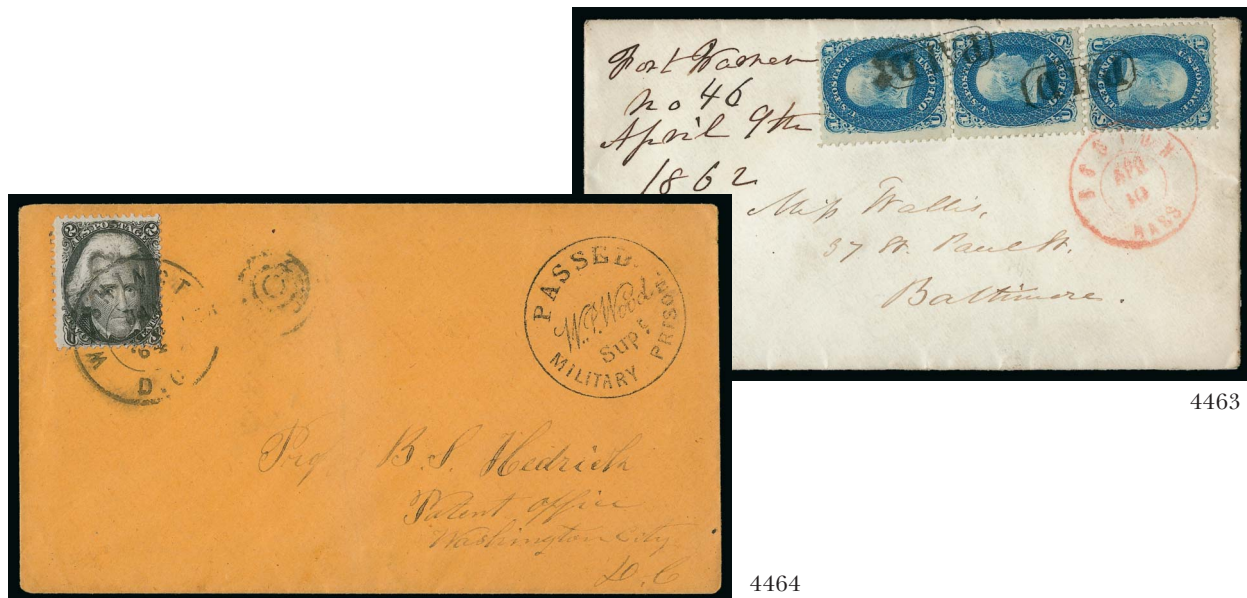 Fort Warren
no 46
April 9th
1862
U.S. POSTAGE
U.S. POSTAGE
U.S. POSTAGE
PAID
PAID
BOSTON
APR
10
MASS
Miss Wallis,
37 St. Paul St.
Baltimore.
4463
U.S. POSTAGE
WASHINGT
D.C
PASSED
W.P. Wood
Supt
MILITARY PRISON
Prof B. S. Hedrick
Patent Office
Washington City
D.C
4464